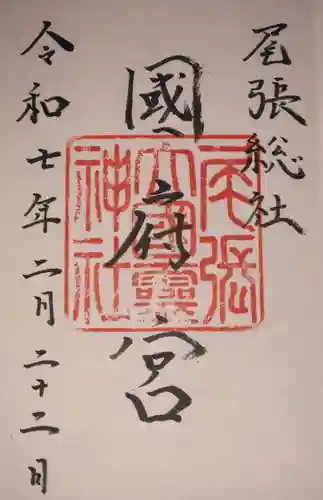 尾張総社
國府宮
尾張大國霊神社
令和七年二月二十二日